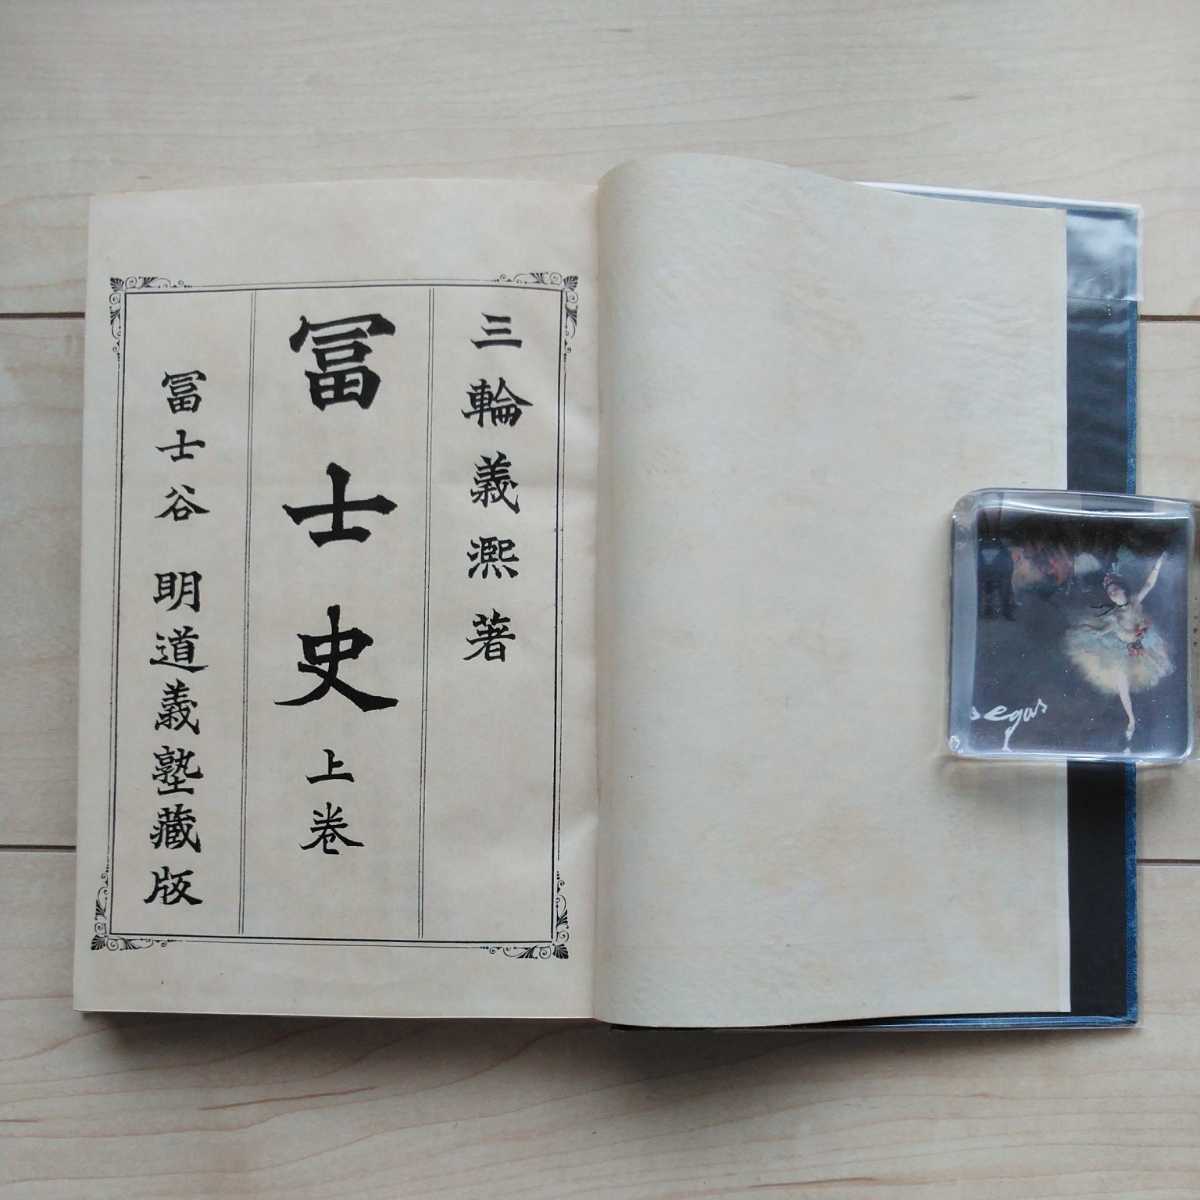 三輪義熈著
冨士史 上巻
冨士谷 明道義塾藏版
Degas